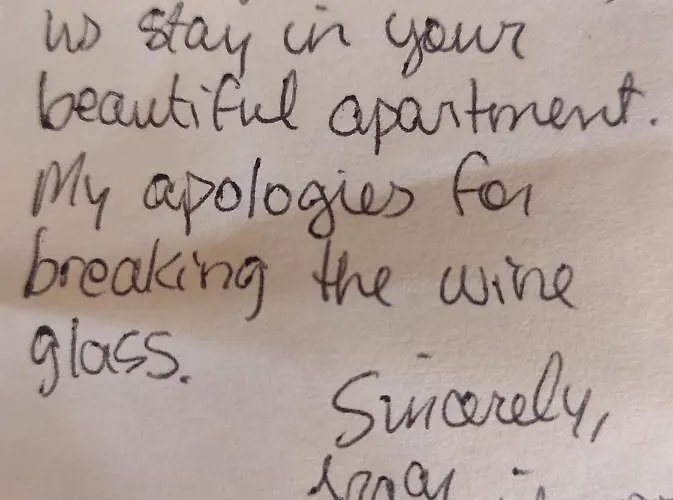 us stay in your
beautiful apartment.
My apologies for
breaking the wine
glass.
Sincerely,